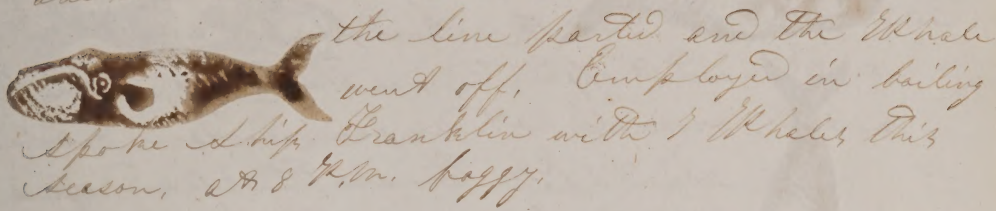 the line parted and the Whale
went off, Employed in boiling
spoke Ship Franklin with 7 Whales this
season, at 8 P.M. foggy.